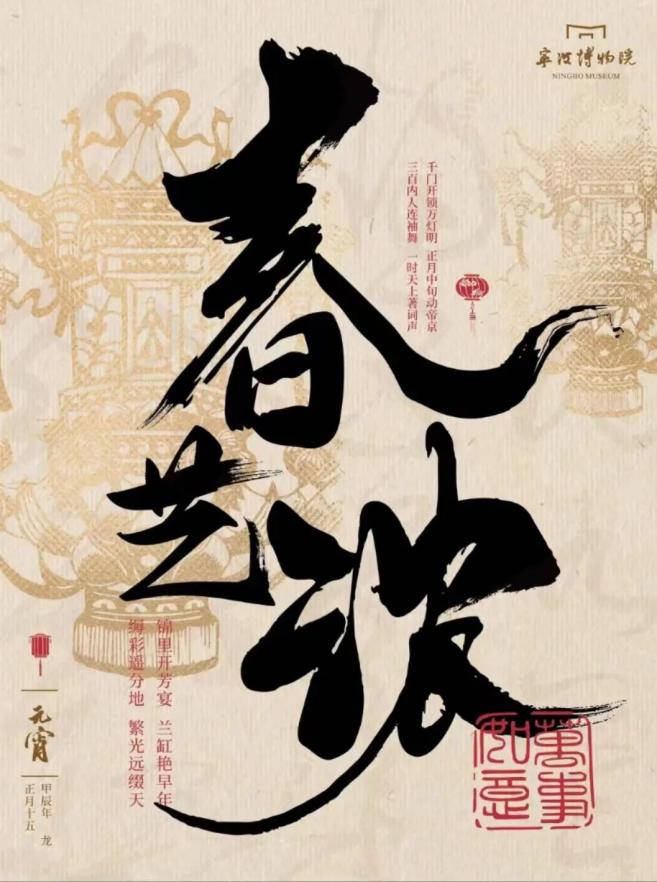 寧波博物院
NINGBO MUSEUM
春
艺
波
千门开锁万灯明 正月中旬动帝京
三百内人连袖舞 一时天上著词声
锦里开芳宴 兰缸艳早年
缛彩遥分地 繁光远缀天
元宵
甲辰年 龙
正月十五
萬事
如意